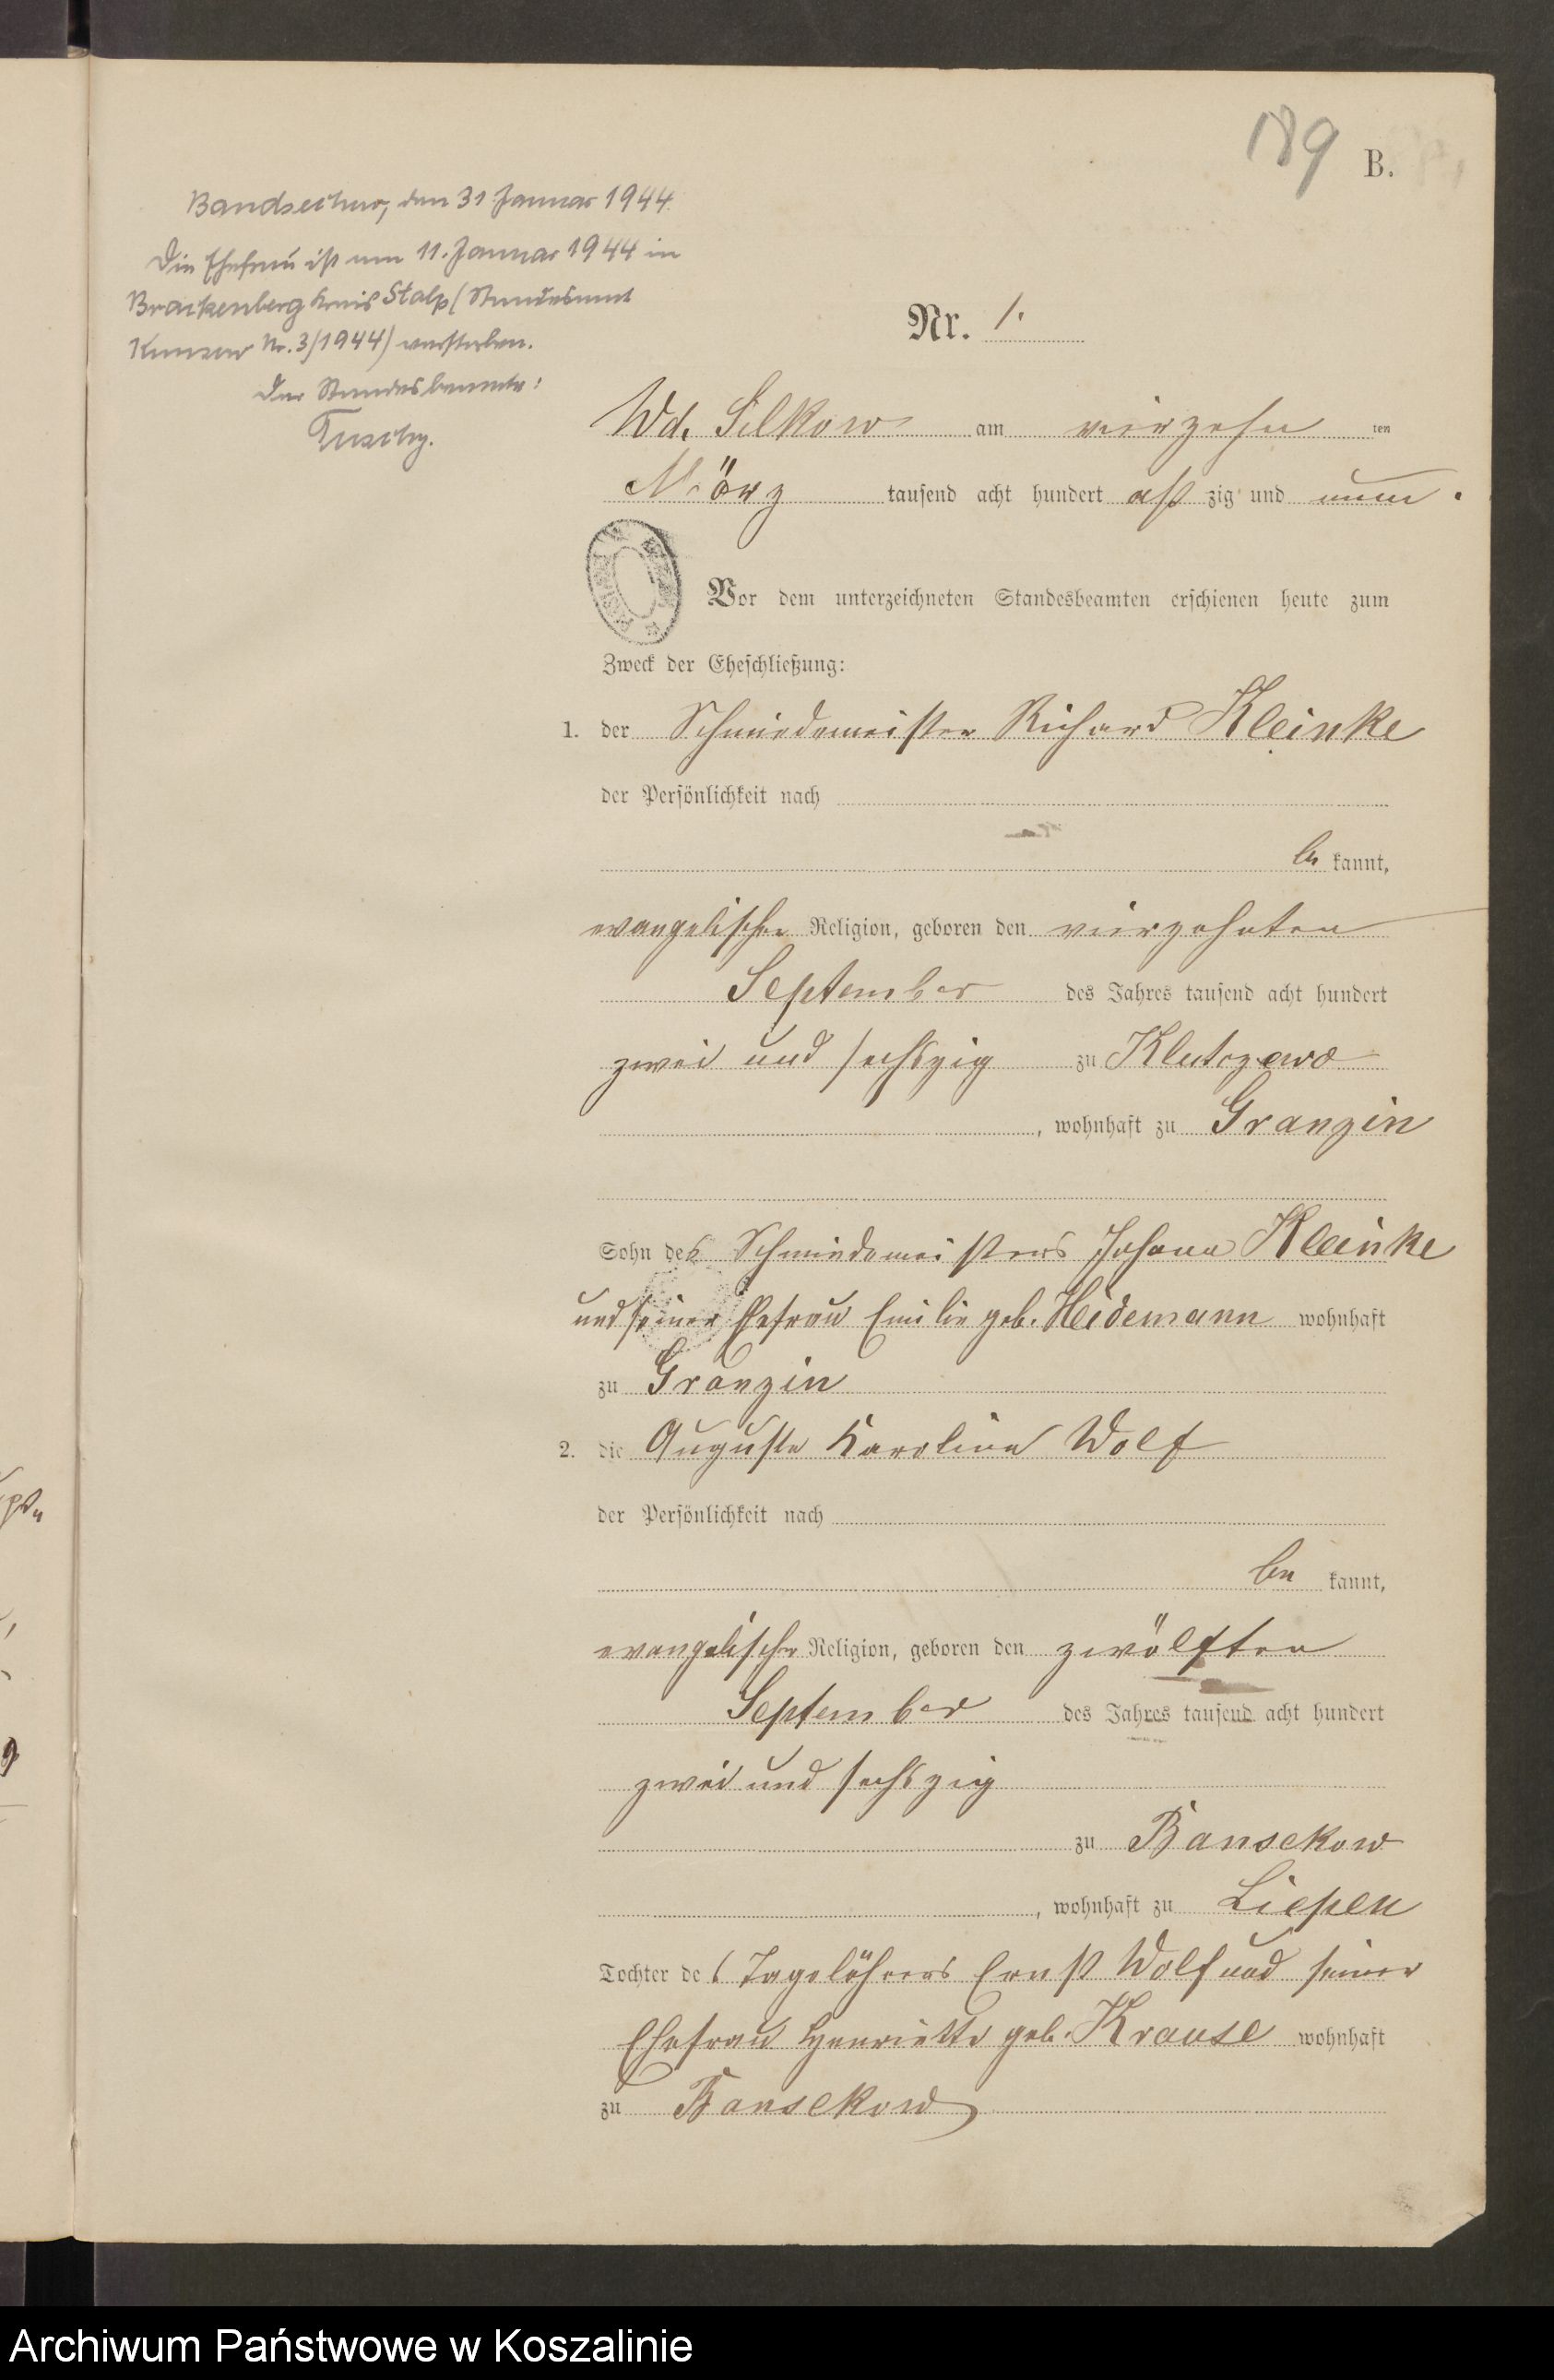 189
B.
Bandsechow, den 31. Januar 1944.
Die Ehefrau ist am 11. Januar 1944 in
Brackenberg Kreis Stolp (Standesamt
Kunsow Nr. 3/1944) verstorben.
Der Standesbeamte:
Nr. 1.
Wd. Silkow am vierzehn ten
März tausend acht hundert acht zig und neun.
Vor dem unterzeichneten Standesbeamten erschienen heute zum
Zweck der Eheschließung:
1. der Schmiedemeister Richard Kleinke
der Persönlichkeit nach
be kannt,
evangelischer Religion, geboren den vierzehnten
September des Jahres tausend acht hundert
zwei und sechszig zu Klutczewo
, wohnhaft zu Granzin
Sohn des Schmiedemeisters Johann Kleinke
und seiner Ehefrau Emilie geb. Heidemann wohnhaft
zu Granzin
2. die Auguste Karoline Wolf
der Persönlichkeit nach
be kannt,
evangelischer Religion, geboren den zwölften
September des Jahres tausend acht hundert
zwei und sechszig
zu Bansekow
, wohnhaft zu Liepen
Tochter des Tagelöhners Ernst Wolf und seiner
Ehefrau Henriette geb. Krause wohnhaft
zu Bansekow
Archiwum Państwowe w Koszalinie